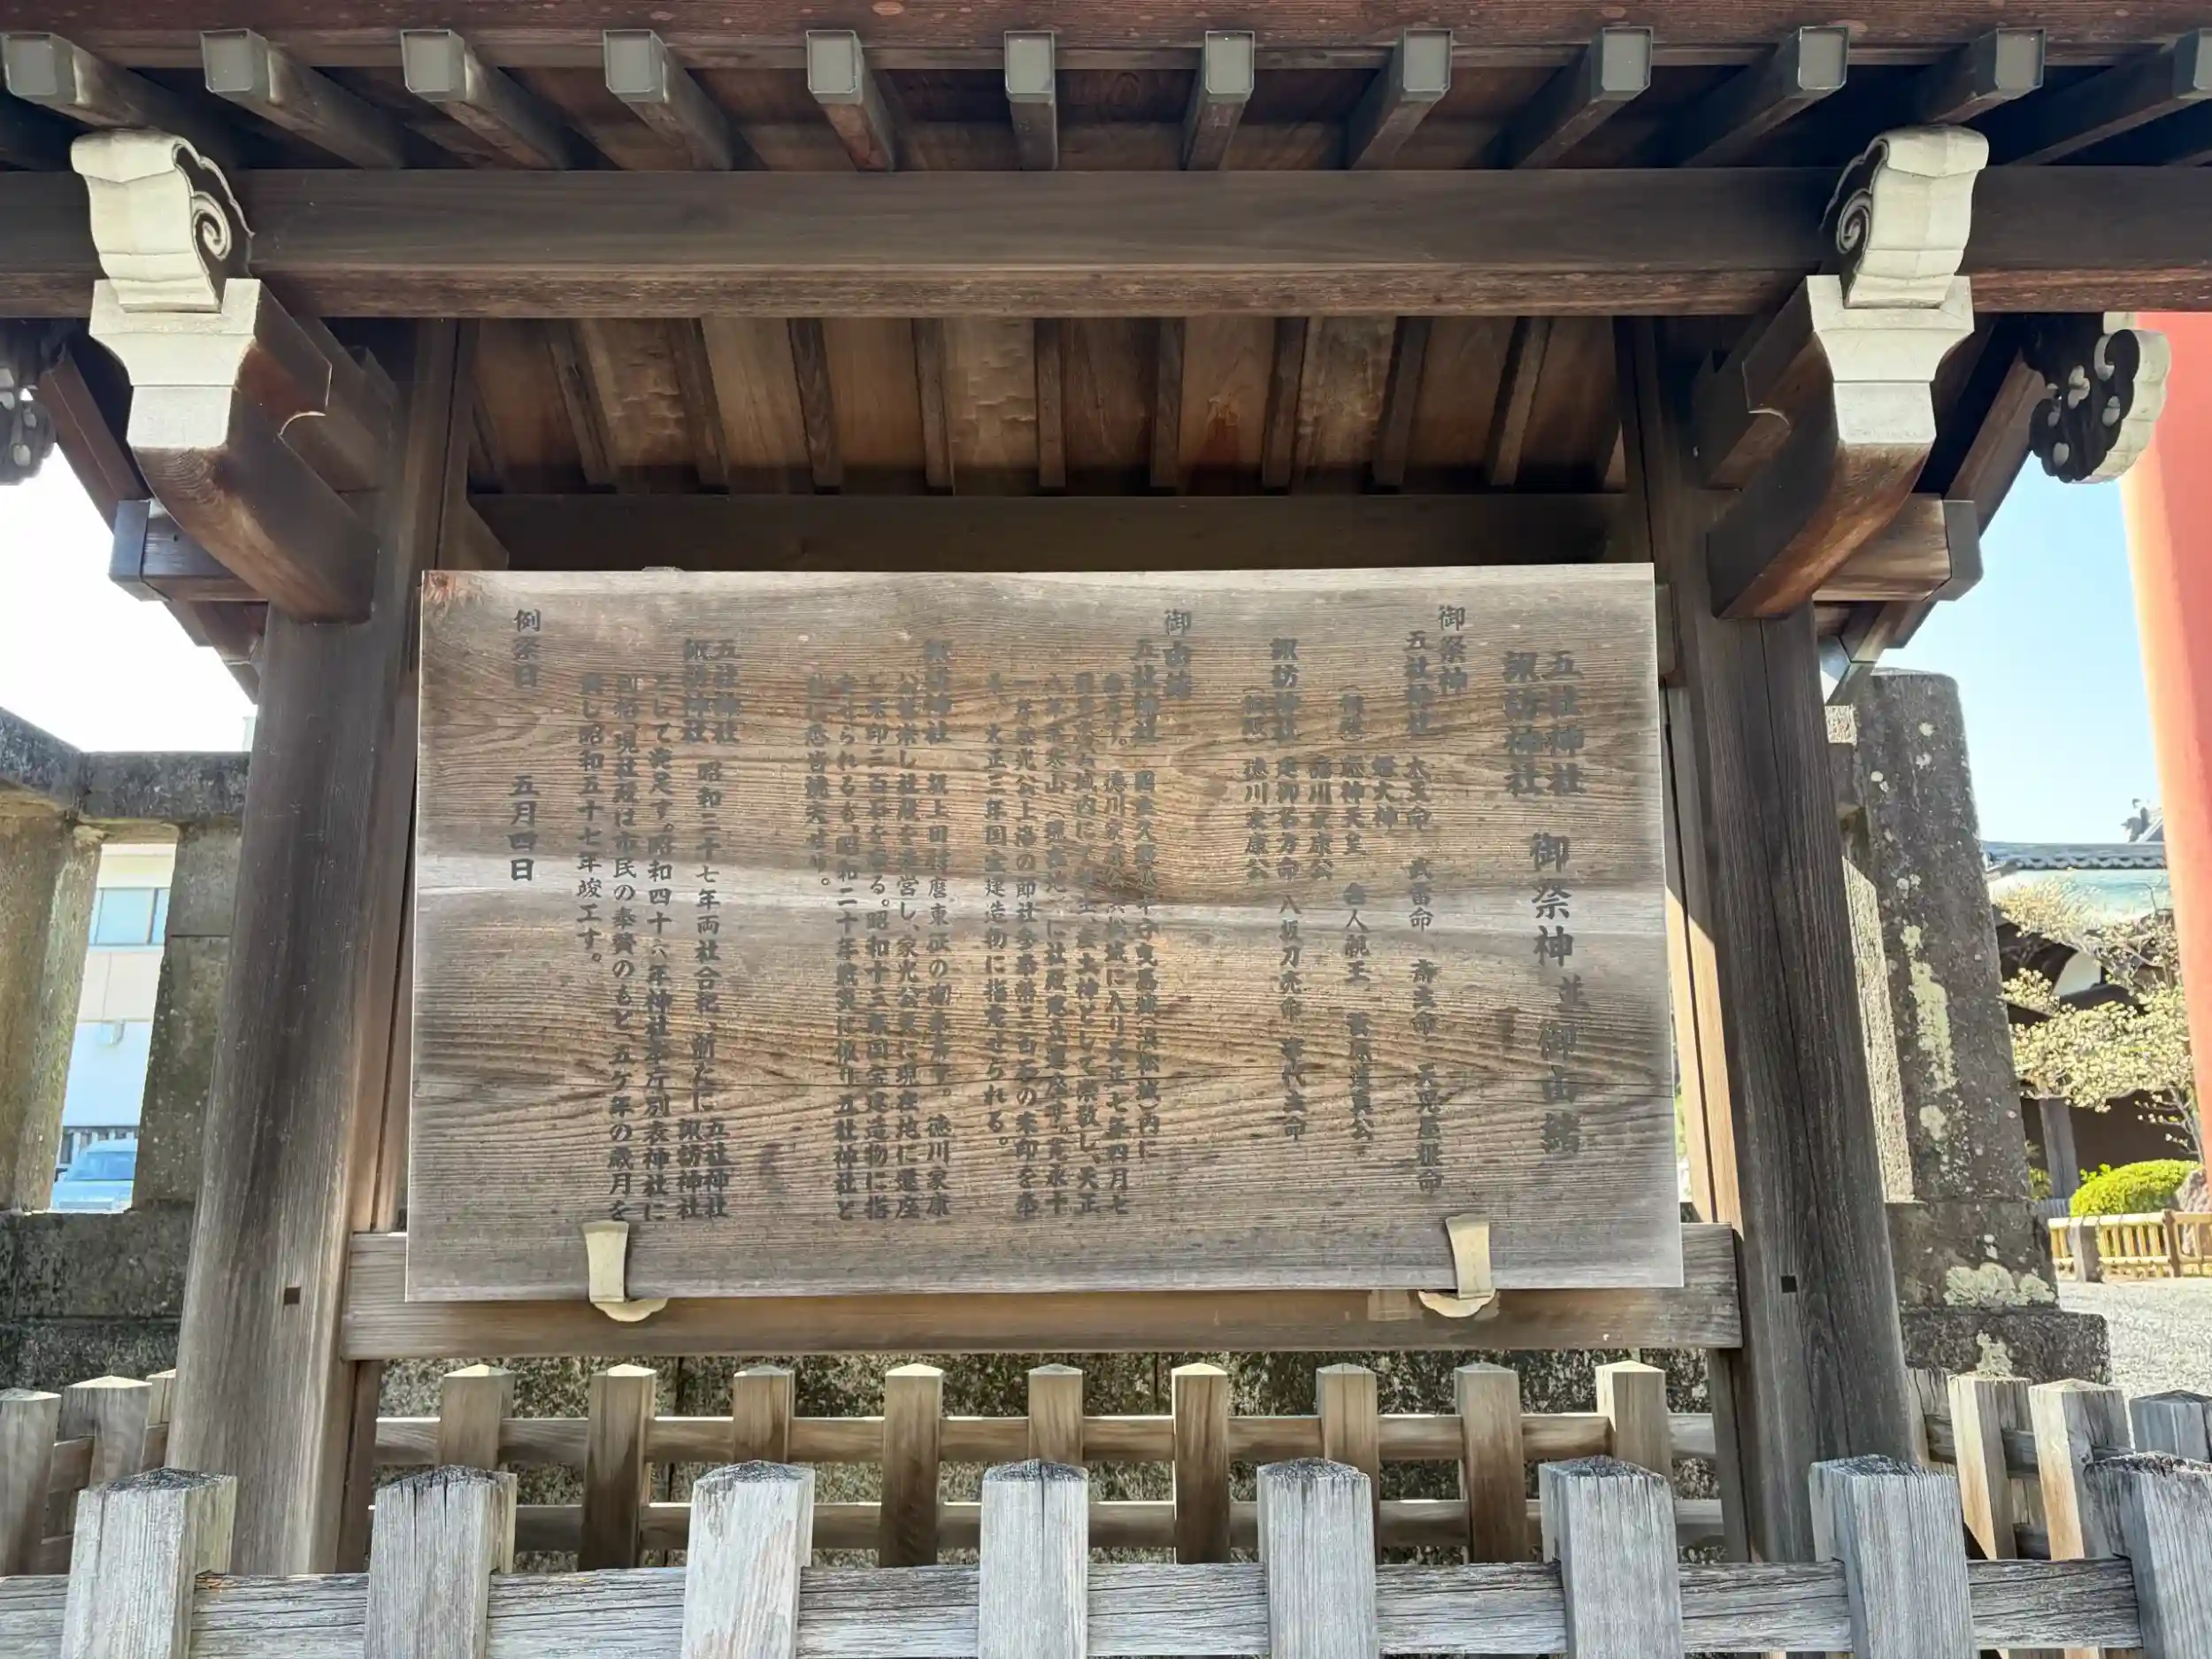 五社神社
諏訪神社 御祭神並御由緒
御祭神
五社神社 太玉命 武雷命 斎主命 天児屋根命
姫大神
應神天皇 舎人親王 菅原道真公
徳川家康公
諏訪神社 建御名方命 八坂刀売命 事代主命
徳川家康公
御由緒
五社神社 曳馬城(浜松城)内に
徳川家康公浜松城に入り天正七年四月七
産土神として崇敬し、天正
に社殿建立遷座す。寛永十
一年家光公上洛の節社参 三百石の朱印を奉
大正三年国宝建造物に指定せられる。
諏訪神社 坂上田村麿東征の 徳川家康
公崇敬し社殿を造営し、家光公更に現在地に遷座
し朱印三百石を奉る。昭和十三年国宝建造物に指
定せられるも、昭和二十年戦災に罹り五社神社と
悉皆焼失せり。
五社神社
諏訪神社 昭和三十七年両社合祀、新たに五社神社
諏訪神社
として発足す。昭和四十六年神社本庁別表神社に
現社殿は市民の奉賛のもと、五ケ年の歳月を
し昭和五十七年竣工す。
例祭日 五月四日